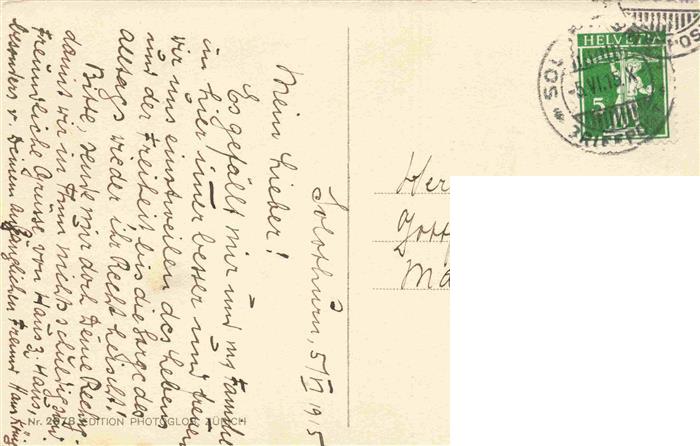 Solothurn, 5/VI 1915
Mein Lieber!
Es gefällt mir und ms Familie
im hier imer besser und freuen
wir uns einstweilen des Lebens
und der Freiheit bis die Sorge des
Alltags wieder ihr Recht heischt!
Bitte, sende mir doch Deine Rechng.
damit wir in Ihnen nichts schuldig sind
Freundliche Grüsse von Haus z. Haus,
besonders v. Deinem anhänglichen Freund Hans
Her
Gott
Ma
HELVETIA
5
SOL
5.VI.15.X
BRIEFPO
POS
Nr. 2878 EDITION PHOTOGLOB, ZÜRICH